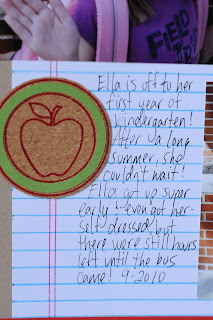 FIELD
Ella is off to her
first year of
kindergarten!
After a long
summer, she
couldn't wait!
Ella got up super
early & even got her-
self dressed, but
there were still hours
left until the bus
came! 9-2010